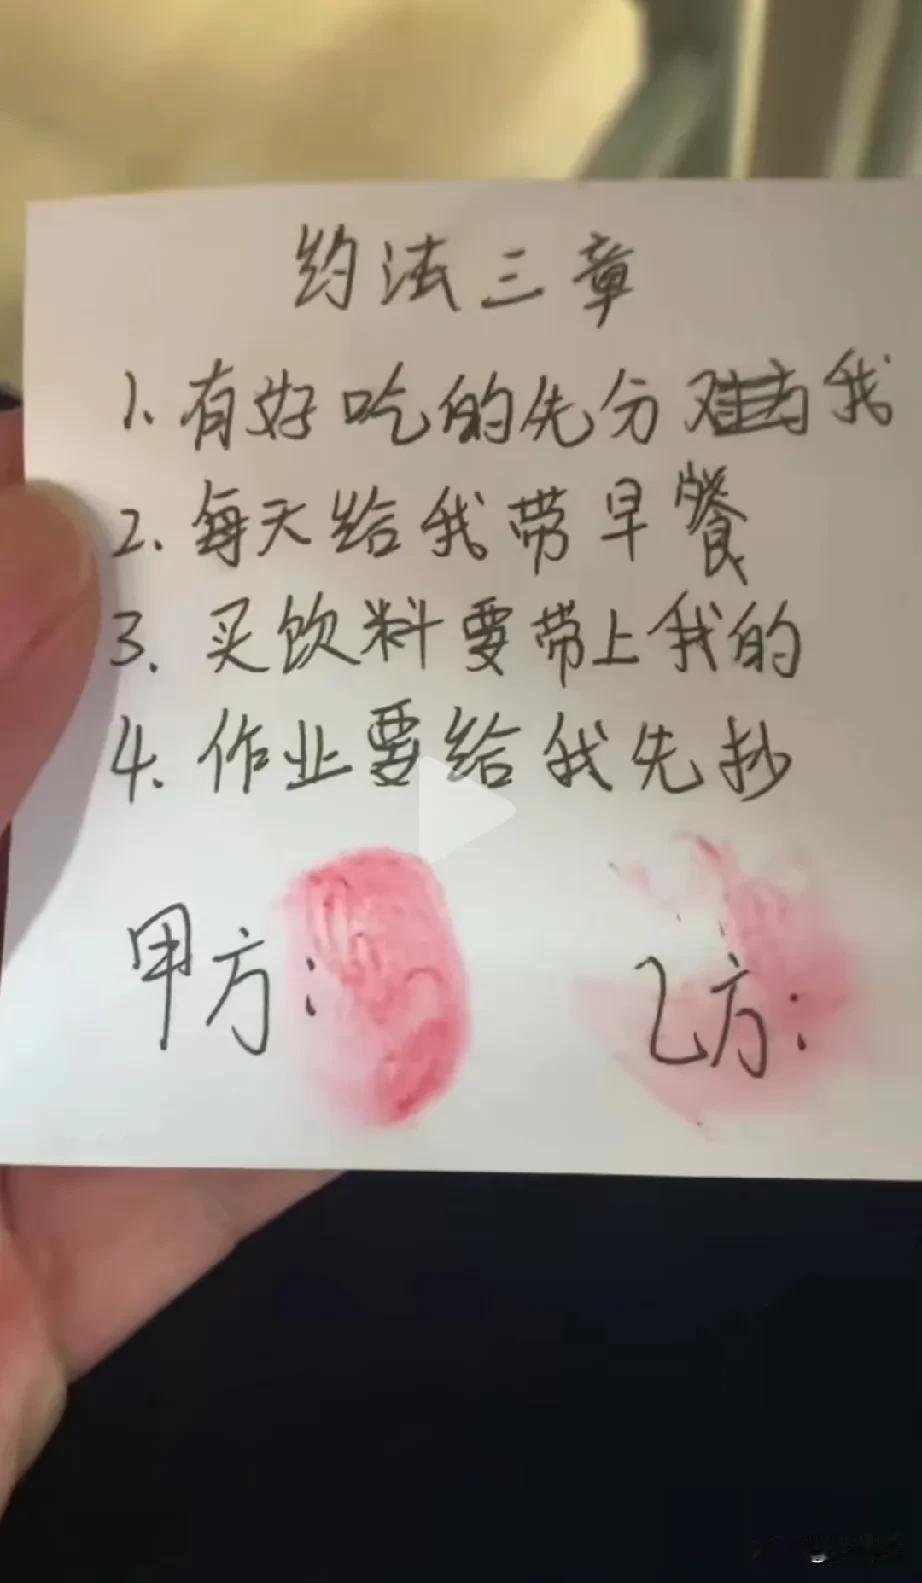 约法三章
1. 有好吃的先分我
2. 每天给我带早餐
3. 买饮料要带上我的
4. 作业要给我先抄
甲方: 乙方: